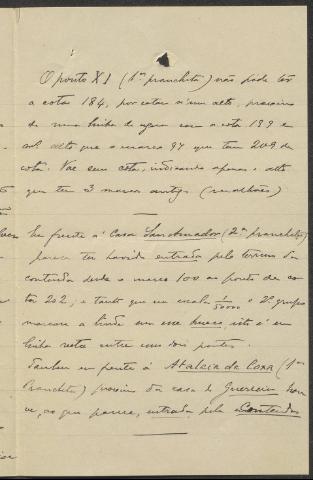 O ponto XI (1ª prancheta) não póde ter
a cota 184, por estar n'um alto, proximo
de uma linha de agua com a cota 199 e
um alto que o marco 97 que tem 209 de
cota. Vae sem cota, indicando apenas o alto
que tem 3 marcos antigos (            )
Em frente á Casa San Amador (2ª prancheta)
parece ter havido entrada pelo terreno da
contenda desde o marco 100 ao ponto de co-
ta 202; e tanto que na escala 1/50000 o 2º grupo
marcou a linha sem esse    , isto é em
linha reta entre um dois pontos.
Tambem em frente á Atalaia da Coxa (1ª
Prancheta) proximo da casa de Guerreiro hou-
ve, ao que parece, entrada pela Contenda